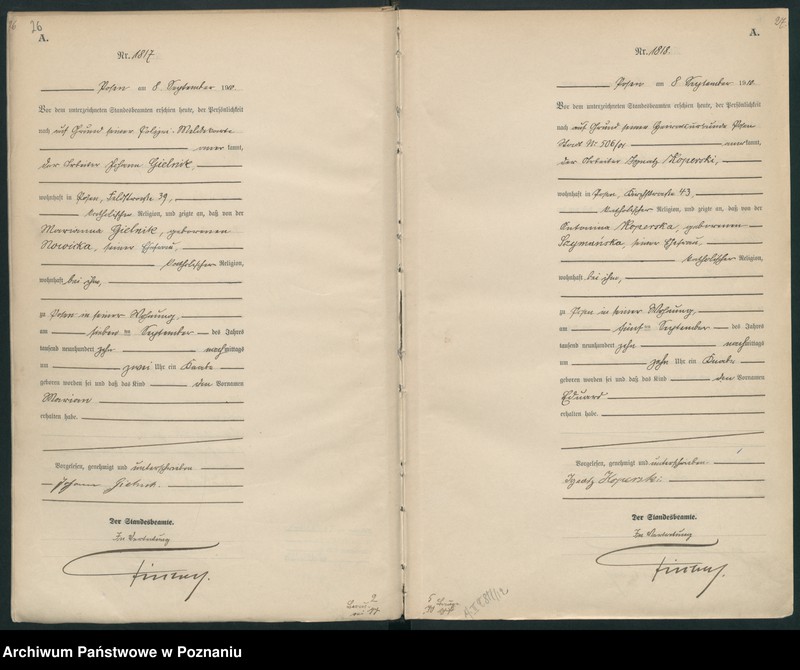 26
A.
Nr. 1817
Posen am 8. September 1910
Vor dem unterzeichneten Standesbeamten erschien heute, der Persönlichkeit
nach auf Grund seiner Polizei-Meldekarte
kannt,
der Arbeiter Johann Gielnik,
wohnhaft in Posen, Feldstrasse 39,
katholischer Religion, und zeigte an, daß von der
Marianna Gielnik, geborenen
Nowicka, seiner Ehefrau,
katholischer Religion,
wohnhaft bei ihm,
zu Posen in seiner Wohnung,
am sieben ten September des Jahres
tausend neunhundert zehn nachmittags
um zwei Uhr ein Knabe
geboren worden sei und daß das Kind den Vornamen
Marian
erhalten habe.
Vorgelesen, genehmigt und unterschrieben
Johann Gielnik.
Der Standesbeamte.
In Vertretung
27
A.
Nr. 1818.
Posen am 8. September 1910.
Vor dem unterzeichneten Standesbeamten erschien heute, der Persönlichkeit
nach auf Grund seiner Posen
Stadt Nr. 506/01 kannt,
der Arbeiter Ignatz Koperski,
wohnhaft in Posen, 43,
katholischer Religion, und zeigte an, daß von der
Antonina Koperska, geborenen
Szymańska, seiner Ehefrau,
katholischer Religion,
wohnhaft bei ihm,
zu Posen in seiner Wohnung,
am fünf ten September des Jahres
tausend neunhundert zehn nachmittags
um zehn Uhr ein Knabe
geboren worden sei und daß das Kind den Vornamen
Eduard
erhalten habe.
Vorgelesen, genehmigt und unterschrieben
Ignatz Koperski.
Der Standesbeamte.
In Vertretung
Archiwum Państwowe w Poznaniu